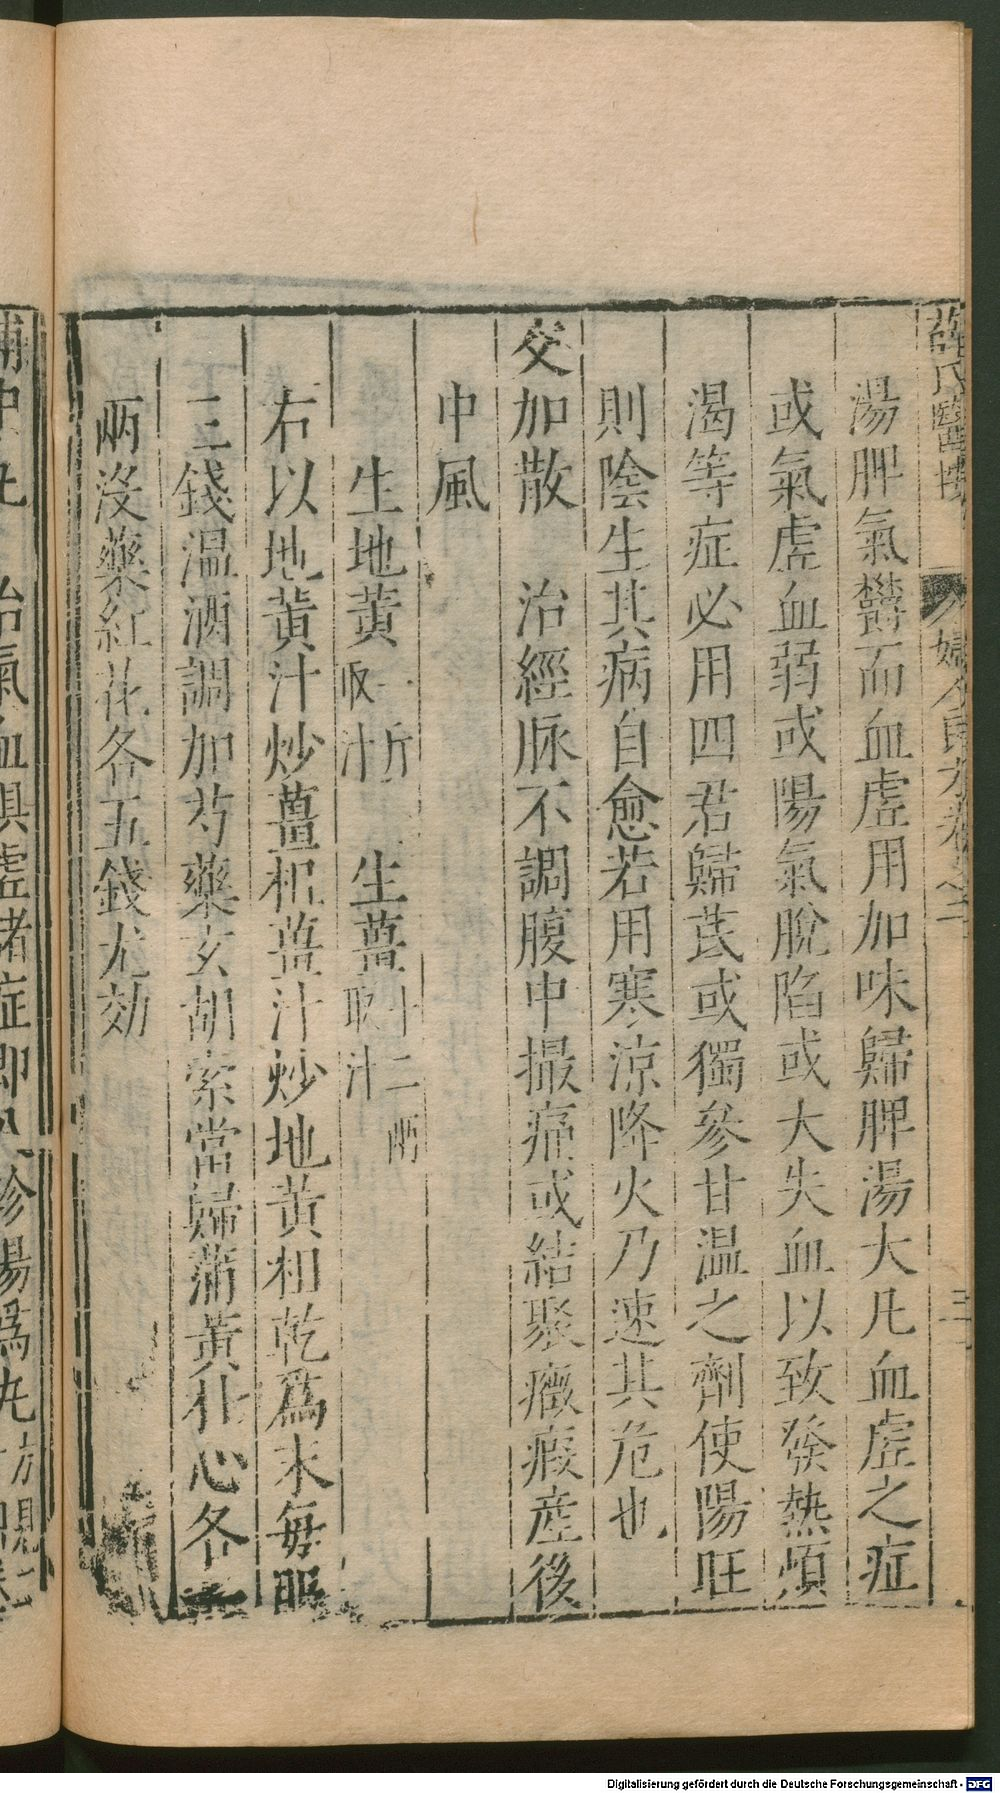 薛氏醫按 婦人良方卷之二 三
湯脾氣鬱而血虛用加味歸脾湯大凡血虛之症
或氣虛血弱或陽氣脫陷或大失血以致發熱煩
渴等症必用四君歸芪或獨參甘温之劑使陽旺
則陰生其病自愈若用寒涼降火乃速其危也
交加散 治經脉不調腹中撮痛或結聚癥瘕產後
中風
生地黄一斤取汁 生薑十二兩取汁
右以地黄汁炒薑柤薑汁炒地黄柤乾爲末每服
三錢温酒調加芍藥玄胡索當歸蒲黄桂心各一
兩沒藥紅花各五錢尤効
補中 治氣血俱虛諸症即八珍湯爲丸方見
Digitalisierung gefördert durch die Deutsche Forschungsgemeinschaft - DFG